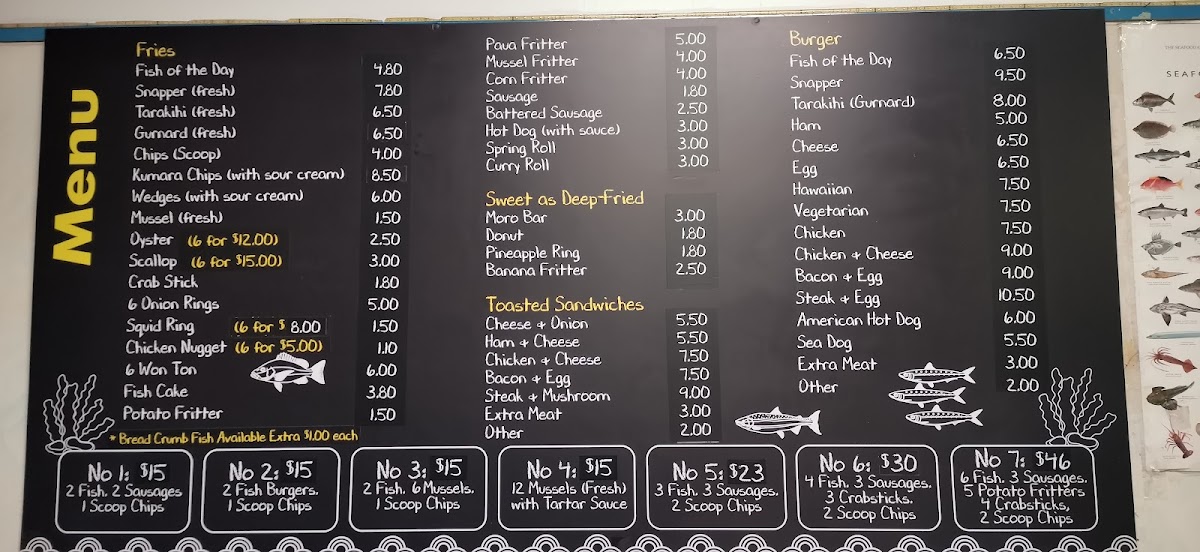 Menu
Fries
Fish of the Day 4.80
Snapper (fresh) 7.80
Tarakihi (fresh) 6.50
Gurnard (fresh) 6.50
Chips (Scoop) 4.00
Kumara Chips (with sour cream) 8.50
Wedges (with sour cream) 6.00
Mussel (fresh) 1.50
Oyster (6 for $12.00) 2.50
Scallop (6 for $15.00) 3.00
Crab Stick 1.80
6 Onion Rings 5.00
Squid Ring (6 for $ 8.00 1.50
Chicken Nugget (6 for $5.00) 1.10
6 Won Ton 6.00
Fish Cake 3.80
Potato Fritter 1.50
* Bread Crumb Fish Available Extra $1.00 each
Paua Fritter 5.00
Mussel Fritter 4.00
Corn Fritter 4.00
Sausage 1.80
Battered Sausage 2.50
Hot Dog (with sauce) 3.00
Spring Roll 3.00
Curry Roll 3.00
Sweet as Deep-Fried
Moro Bar 3.00
Donut 1.80
Pineapple Ring 1.80
Banana Fritter 2.50
Toasted Sandwiches
Cheese + Onion 5.50
Ham + Cheese 5.50
Chicken + Cheese 7.50
Bacon + Egg 7.50
Steak + Mushroom 9.00
Extra Meat 3.00
Other 2.00
Burger
Fish of the Day 6.50
Snapper 9.50
Tarakihi (Gurnard) 8.00
Ham 5.00
Cheese 6.50
Egg 6.50
Hawaiian 7.50
Vegetarian 7.50
Chicken 7.50
Chicken + Cheese 9.00
Bacon + Egg 9.00
Steak + Egg 10.50
American Hot Dog 6.00
Sea Dog 5.50
Extra Meat 3.00
Other 2.00
No 1: $15
2 Fish. 2 Sausages
1 Scoop Chips
No 2: $15
2 Fish Burgers.
1 Scoop Chips
No 3: $15
2 Fish. 6 Mussels.
1 Scoop Chips
No 4: $15
12 Mussels (Fresh)
with Tartar Sauce
No 5: $23
3 Fish. 3 Sausages.
2 Scoop Chips
No 6: $30
4 Fish. 3 Sausages.
3 Crabsticks.
2 Scoop Chips
No 7: $46
6 Fish. 3 Sausages.
5 Potato Fritters
4 Crabsticks,
2 Scoop Chips